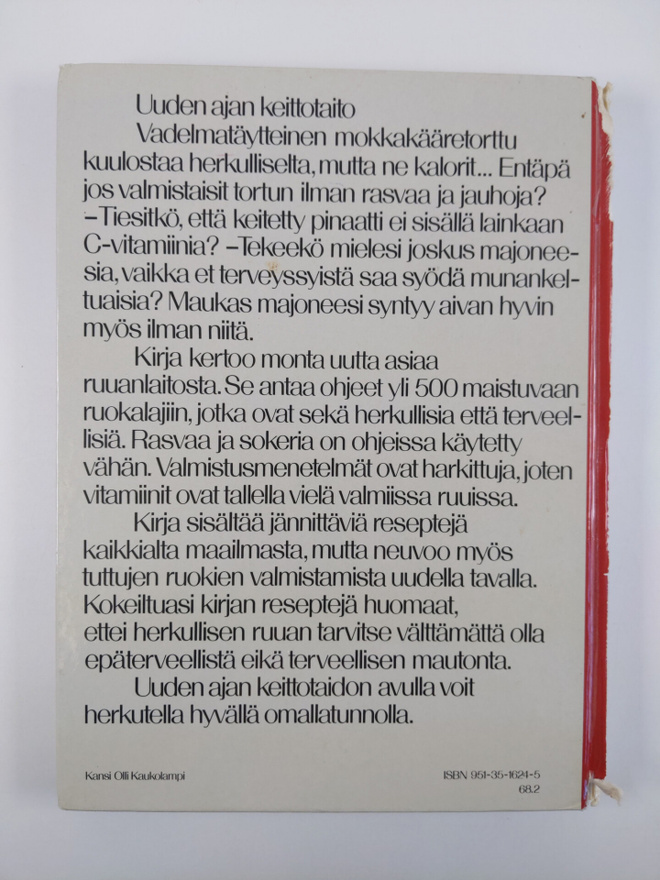 Uuden ajan keittotaito
Vadelmatäytteinen mokkakääretorttu
kuulostaa herkulliselta, mutta ne kalorit... Entäpä
jos valmistaisit tortun ilman rasvaa ja jauhoja?
–Tiesitkö, että keitetty pinaatti ei sisällä lainkaan
C-vitamiinia? –Tekeekö mielesi joskus majonee-
sia, vaikka et terveyssyistä saa syödä munankel-
tuaisia? Maukas majoneesi syntyy aivan hyvin
myös ilman niitä.
Kirja kertoo monta uutta asiaa
ruuanlaitosta. Se antaa ohjeet yli 500 maistuvaan
ruokalajiin, jotka ovat sekä herkullisia että terveel-
lisiä. Rasvaa ja sokeria on ohjeissa käytetty
vähän. Valmistusmenetelmät ovat harkittuja, joten
vitamiinit ovat tallella vielä valmiissa ruuissa.
Kirja sisältää jännittäviä reseptejä
kaikkialta maailmasta, mutta neuvoo myös
tuttujen ruokien valmistamista uudella tavalla.
Kokeiltuasi kirjan reseptejä huomaat,
ettei herkullisen ruuan tarvitse välttämättä olla
epäterveellistä eikä terveellisen mautonta.
Uuden ajan keittotaidon avulla voit
herkutella hyvällä omallatunnolla.
Kansi Olli Kaukolampi
ISBN 951-35-1624-5
68.2